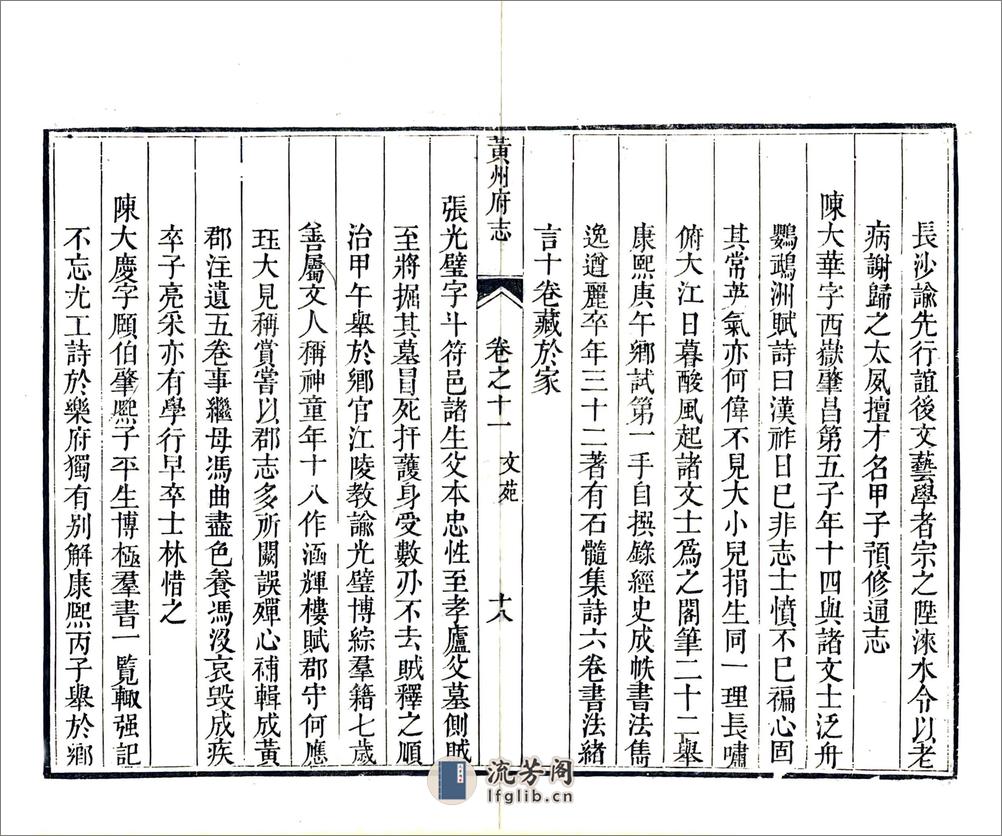 長沙諭先行誼後文藝學者宗之陞淶水令以老
病謝歸之太夙擅才名甲子預修通志
陳大華字西嶽肇昌第五子年十四與諸文士泛舟
鸚鵡洲賦詩曰漢祚日已非志士憤不已褊心固
其常英氣亦何偉不見大小兒捐生同一理長嘯
俯大江日暮酸風起諸文士爲之閣筆二十二舉
康熙庚午鄉試第一手自撰錄經史成帙書法雋
逸遒麗卒年三十二著有石髓集詩六卷書法緒
言十卷藏於家
黃州府志 卷之十一 文苑 十八
張光璧字斗符邑諸生父本忠性至孝廬父墓側賊
至將掘其墓冒死扞護身受數刃不去賊釋之順
治甲午舉於鄉官江陵教諭光璧博綜羣籍七歲
善屬文人稱神童年十八作涵輝樓賦郡守何應
珏大見稱賞嘗以郡志多所闕誤殫心補輯成黃
郡注遺五卷事繼母馮曲盡色養馮沒哀毀成疾
卒子亮采亦有學行早卒士林惜之
陳大慶字頤伯肇熙子平生博極羣書一覽輙强記
不忘尤工詩於樂府獨有别解康熙丙子舉於鄉
流芳阁
lfglib.cn